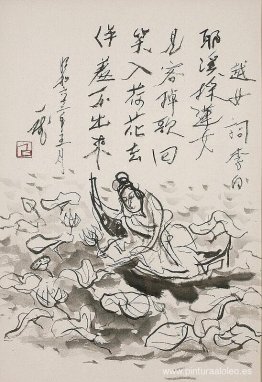 越女詞 李白
耶溪採蓮女
見客棹歌回
笑入荷花去
佯羞不出來
www.pinturaaloleo.es